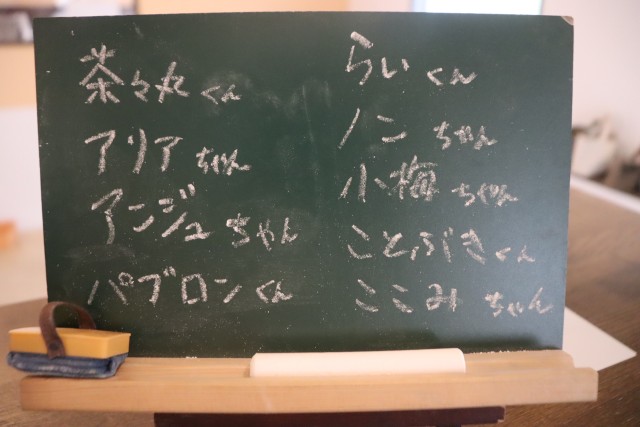 茶々丸くん
アリアちゃん
アンジュちゃん
パブロンくん
らいくん
ノンちゃん
小梅ちゃん
ことぶきくん
ここみちゃん